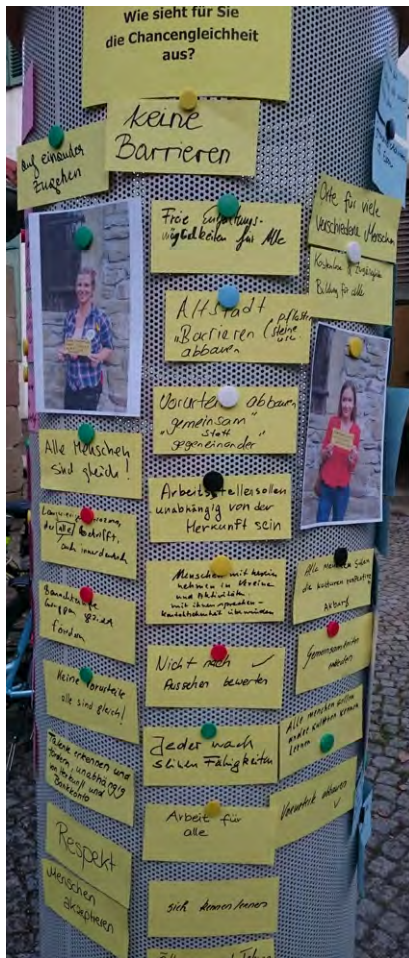 Wie sieht für Sie
die Chancengleichheit
aus?
keine
Barrieren
auf einander
zugehen
Freie
möglichkeiten für Alle
Orte für viele
verschiedene Menschen
Bildung für alle
Altstadt
"Barrieren
abbauen
pflaster
steine
Vorurteile abbauen
"gemeinsam"
statt
gegeneinander
Alle Menschen
sind gleich!
Arbeitsstellen sollen
unabhängig von der
Herkunft sein
der alle
Menschen mit
nehmen in Vereine
und Aktivitäten
mit ihnen sprechen -
Alle Menschen sollen
die Kulturen
Benachteiligte
Gruppen
fördern
Nicht nach
Aussehen bewerten
Gemeinsamkeiten
Keine Vorurteile
alle sind gleich!
Jeder nach
seinen Fähigkeiten
Alle Menschen sollen
andere Kulturen kennen
lernen
Talente erkennen und
fördern, unabhängig
von Herkunft und
Bankkonto
Arbeit für
alle
Vorurteile abbauen
Respekt
Menschen
akzeptieren
sich kennenlernen